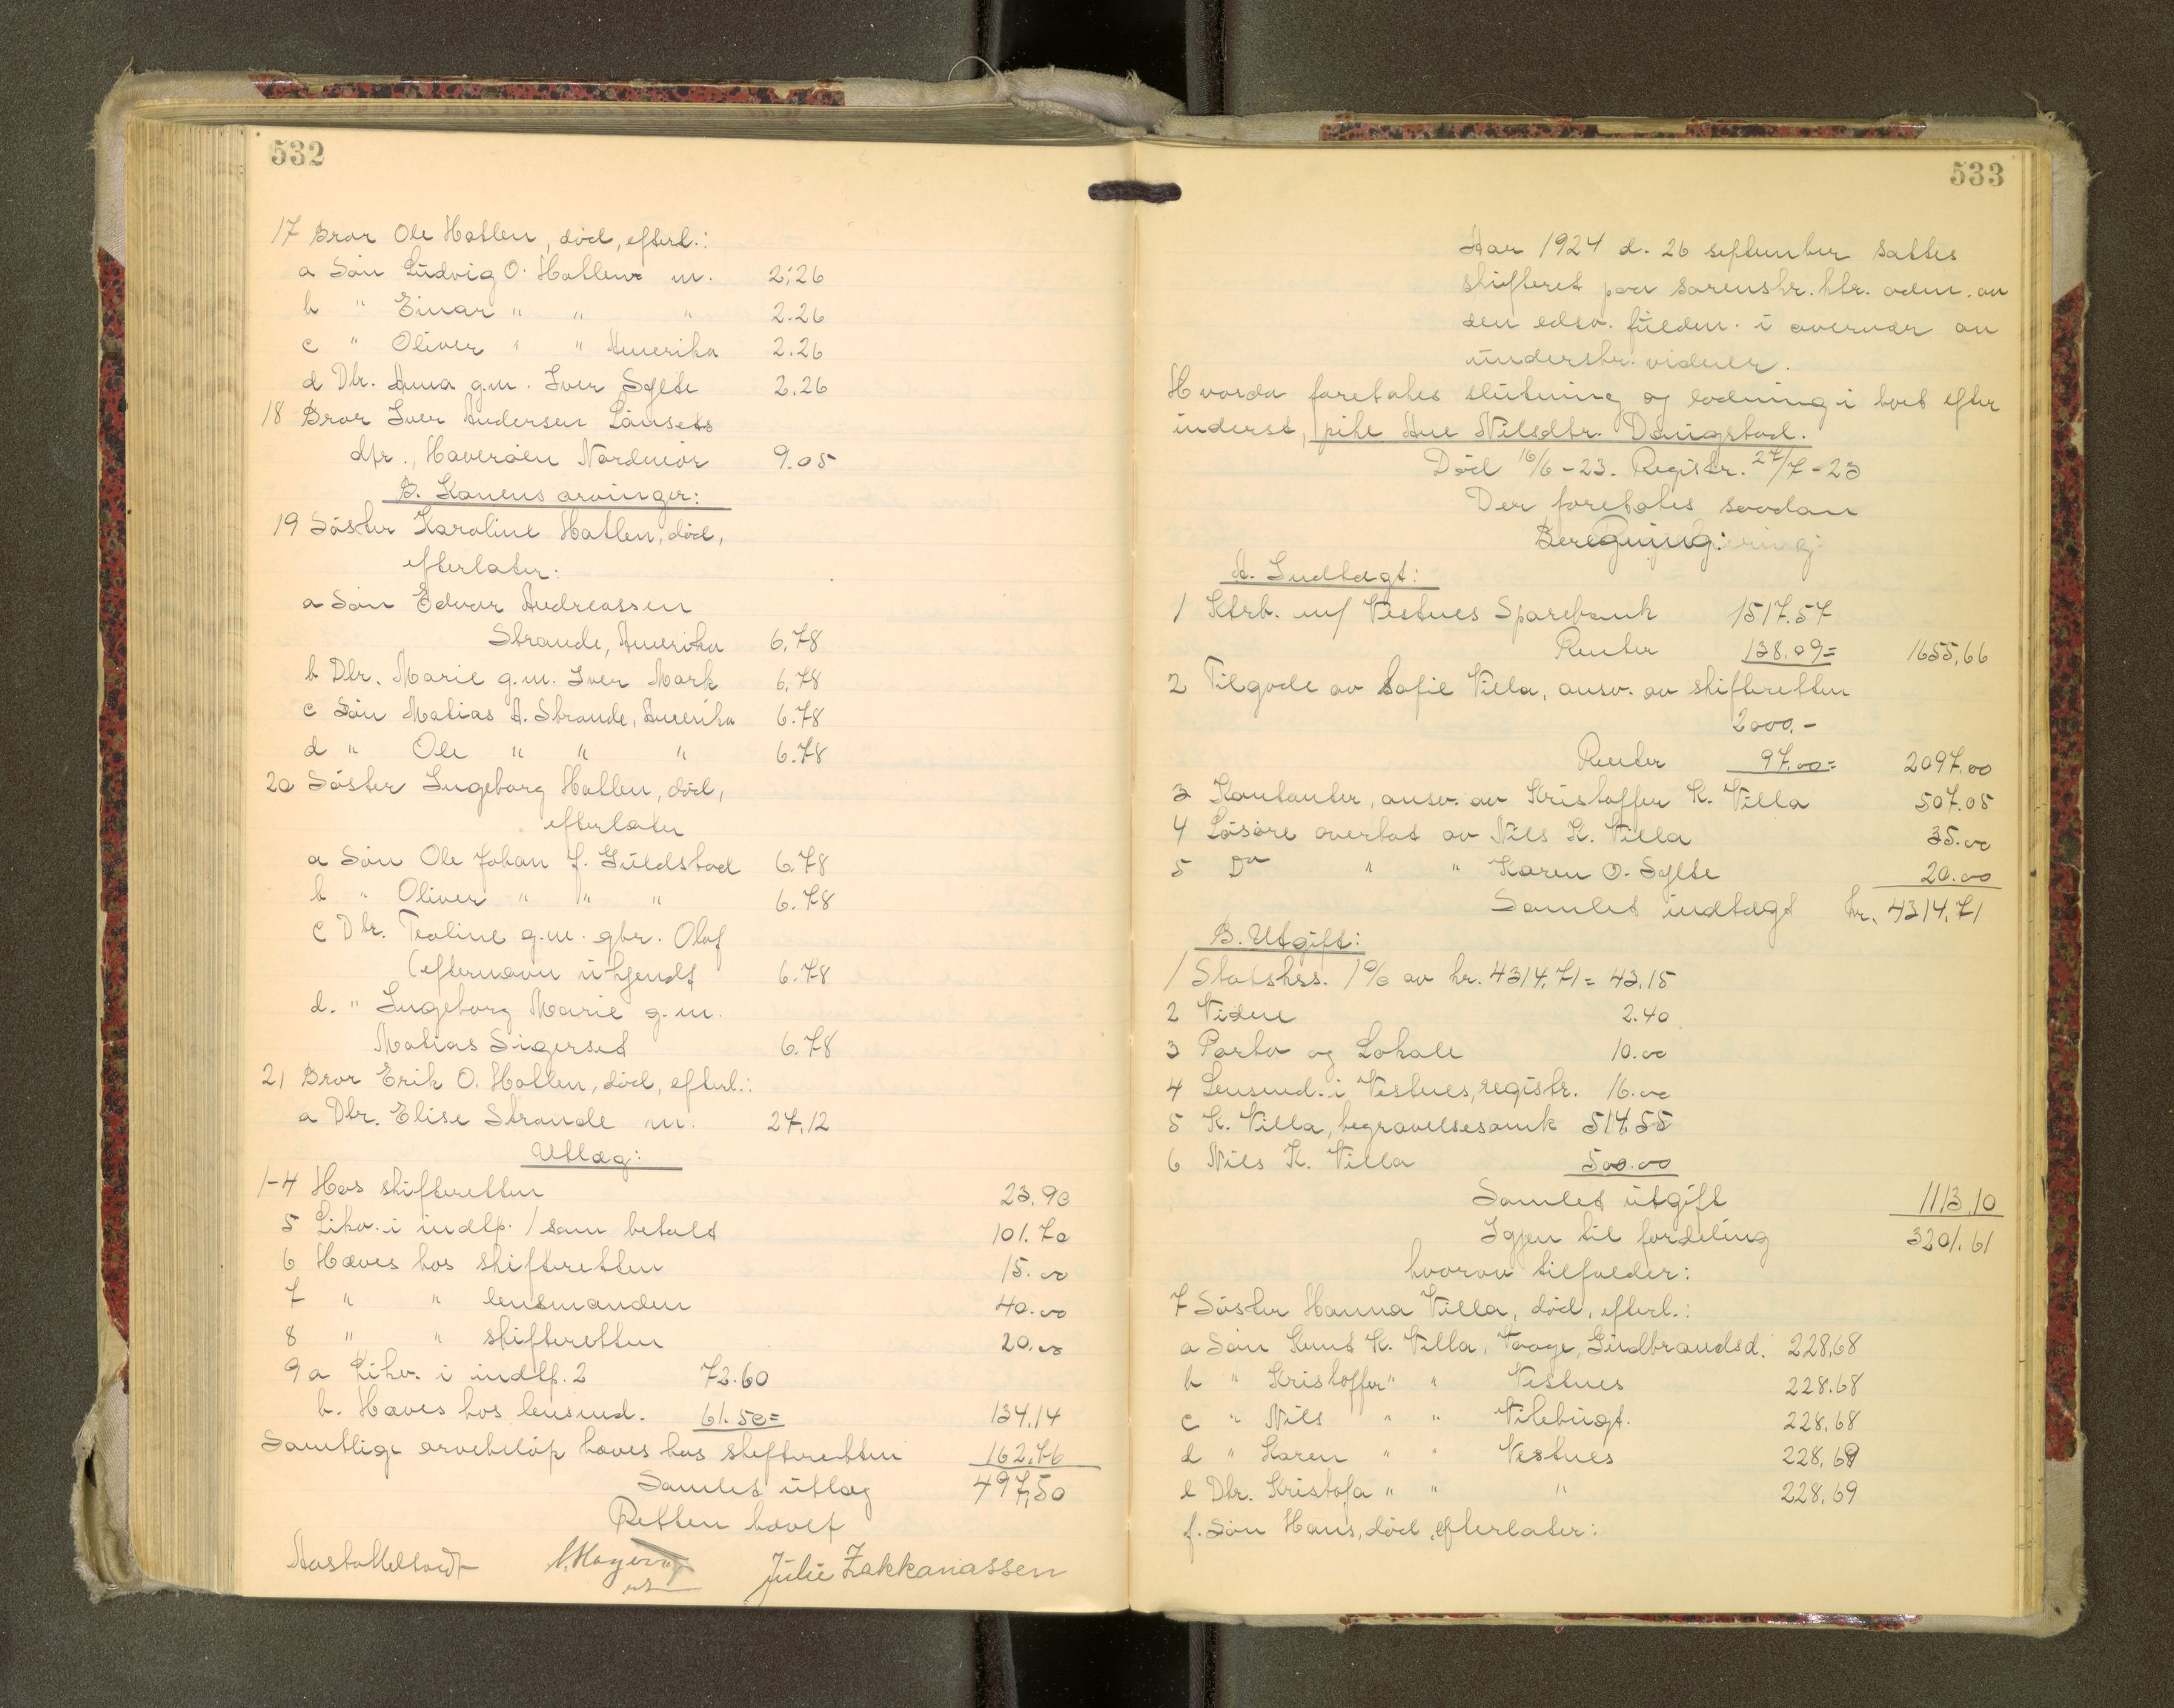 532
17 Bror Ole Hatlen, död, efterl.:
a Sön Ludvig O. Hatlen m. 2.26
b " Einar " " " 2.26
c " Oliver " " Amerika 2.26
d Dtr. Anna g.m. Iver Sylte 2.26
18 Bror Iver Andersen Lånsets
dpr., Haveröen Nordmör 9.05
B. Konens arvinger:
19 Söster Karoline Hatlen, död,
efterlater:
a Sön Edvar Andreassen
Strande, Amerika 6.78
b Dtr. Marie g.m. Iver Mork 6.78
c Sön Matias A. Strande, Amerika 6.78
d " Ole " " " 6.78
20 Söster Ingeborg Hatlen, död,
efterlater
a Sön Ole Johan J. Guldstad 6.78
b " Oliver " " " 6.78
c Dtr. Teoline g.m. gbr. Olaf
(efternavn ukjendt 6.78
d. " Ingeborg Marie g.m.
Matias Sigerset 6.78
21 Bror Erik O. Hatlen, död, efterl.:
a Dtr. Elise Strande m. 27.12
Utlæg:
1-4 Hos skifteretten 23.90
5 Likv. i indtp. 1 som betalt 101.70
6 Hæves hos skifteretten 15.00
7 " " lensmanden 40.00
8 " " skifteretten 20.00
9 a Likv. i indtp. 2 72.60
b. Hæves hos lensmd. 61.50= 134.14
Samtlige arvebelöp hæves hos skifteretten 162.76
Samlet utlæg 497,50
Retten hævet
Julie Zakkariassen
533
Aar 1924 d. 26 september sattes
skifteret paa sorenskr.ktr. adm. av
den edsv. fuldm. i overvær av
underskr. vidner.
Hvorda foretokes slutning og lodning i boet efter
inderst, pike Ane Nilsdtr. Daugstad.
Död 16/6-23. Registr. 27/7-23
Der foretokes saadan
Beregning:
A. Indtægt:
1 Ktrb. m/ Vestnes Sparebank 1517.57
Renter 138.09= 1655,66
2 Tilgode av Sofie Villa, ansv. av skifteretten
2000.-
Renter 97.00= 2097.00
3 Kontanter, ansv. av Kristoffer K. Villa 507.05
4 Lösöre overtat av Nils K. Villa 35.00
5 Do " " Karen O. Sylte 20.00
Samlet indtægt kr. 4314.71
B. Utgift:
1 Statskss. 1% av kr. 4314.71= 43.15
2 Vidne 2.40
3 Porto og Lokale 10.00
4 Lensmd. i Vestnes, registr. 16.00
5 K. Villa, begravelsesomk 514.55
6 Nils K. Villa 500.00
Samlet utgift 1113.10
Igjen til fordeling 3201.61
hvorav tilfalder:
7 Söster Hanna Villa, död, efterl.:
a Sön Knut K. Villa, Vaage, Gudbrandsd. 228,68
b " Kristoffer " " Vestnes 228.68
c " Nils " " Vikebugt. 228,68
d " Karen " " Vestnes 228,69
e Dtr. Kristofa " " " 228.69
f. Sön Hans, död, efterlater: